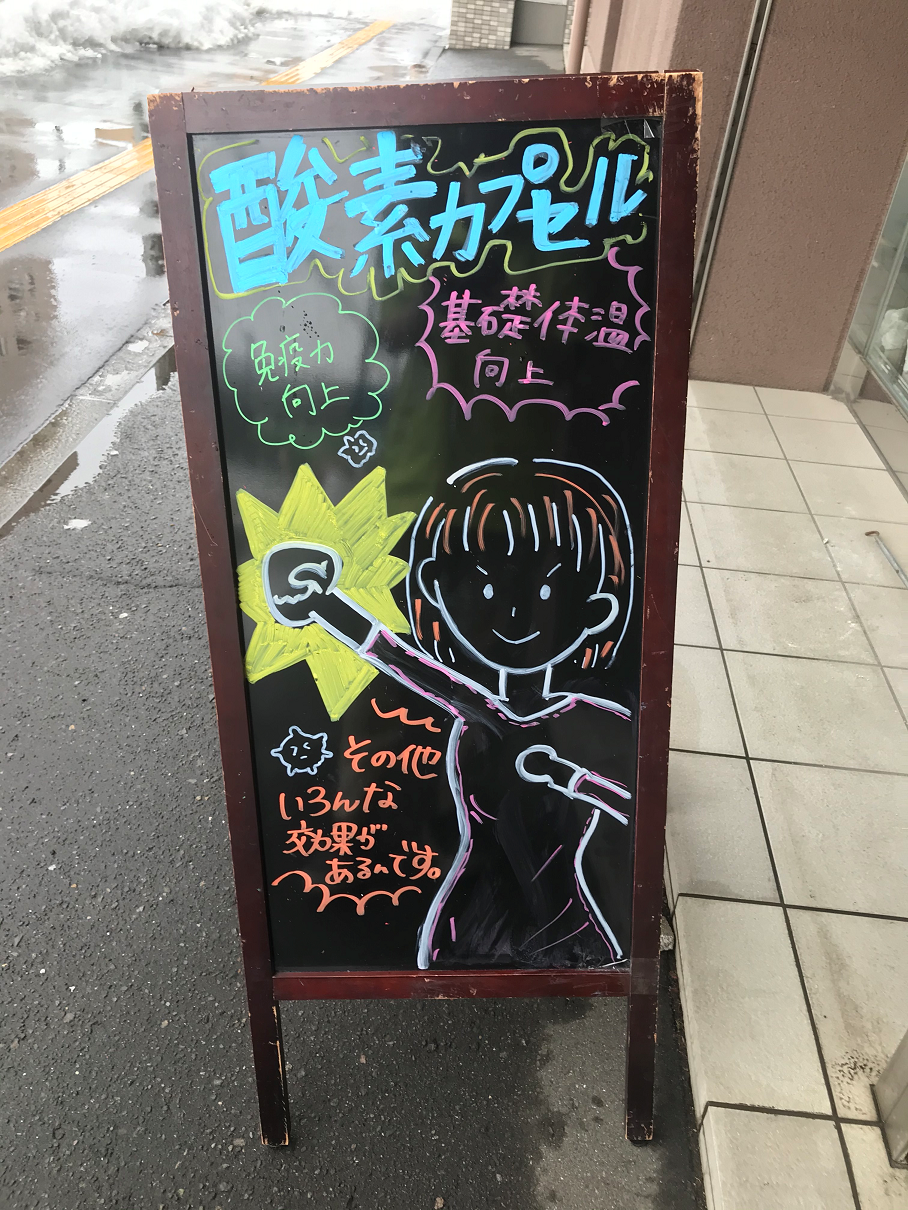 酸素カプセル
免疫力
向上
基礎体温
向上
その他
いろんな
効果が
あるんです。